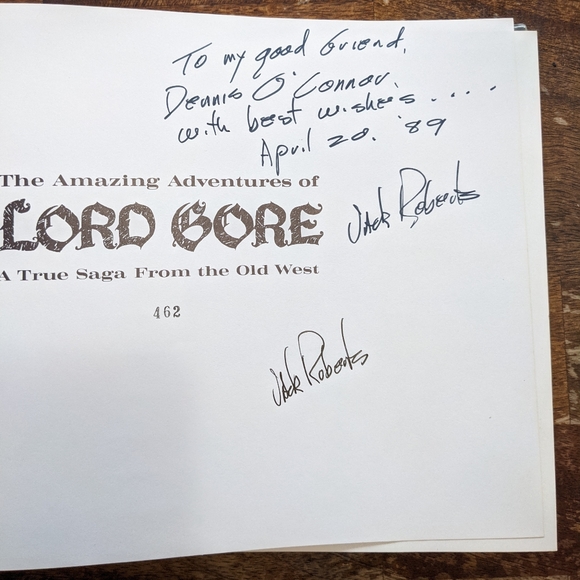 To my good friend,
Dennis O'Connor,
with best wishes....
April 20. '89
Jack Roberts
The Amazing Adventures of
LORD GORE
A True Saga From the Old West
462
Jack Roberts